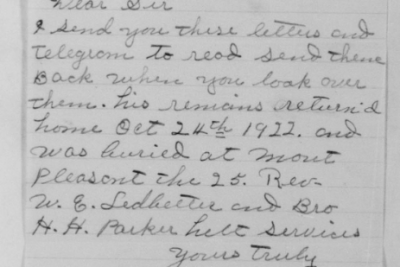 Dear Sir
I send you these letters and
telegrom to read send these
back when you look over
them. his remains return'd
home Oct 24th 1922. and
was buried at Mont
Pleasont the 25. Rev-
W. E. Ledbetter and Bro
H. H. Parker helt services
Yours truly